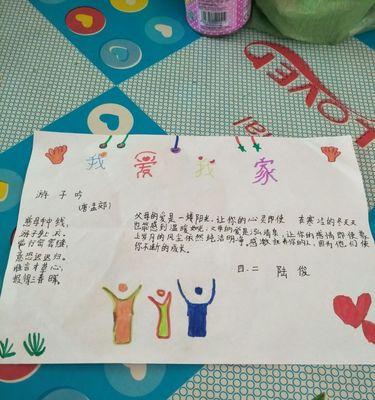 我爱我家
游子吟
(唐孟郊)
慈母手中线,
游子身上衣。
临行密密缝,
意恐迟迟归。
谁言寸草心,
报得三春晖。
父母的爱是一缕阳光,让你的心灵即使在寒冷的冬天
也能感到温暖如春,父母的爱是泓清泉,让你的感情即使蒙
上岁月的风尘依然纯洁明净。感激抚养你的人,因为他们使
你不断的成长。
四、二 陆俊
LOVE